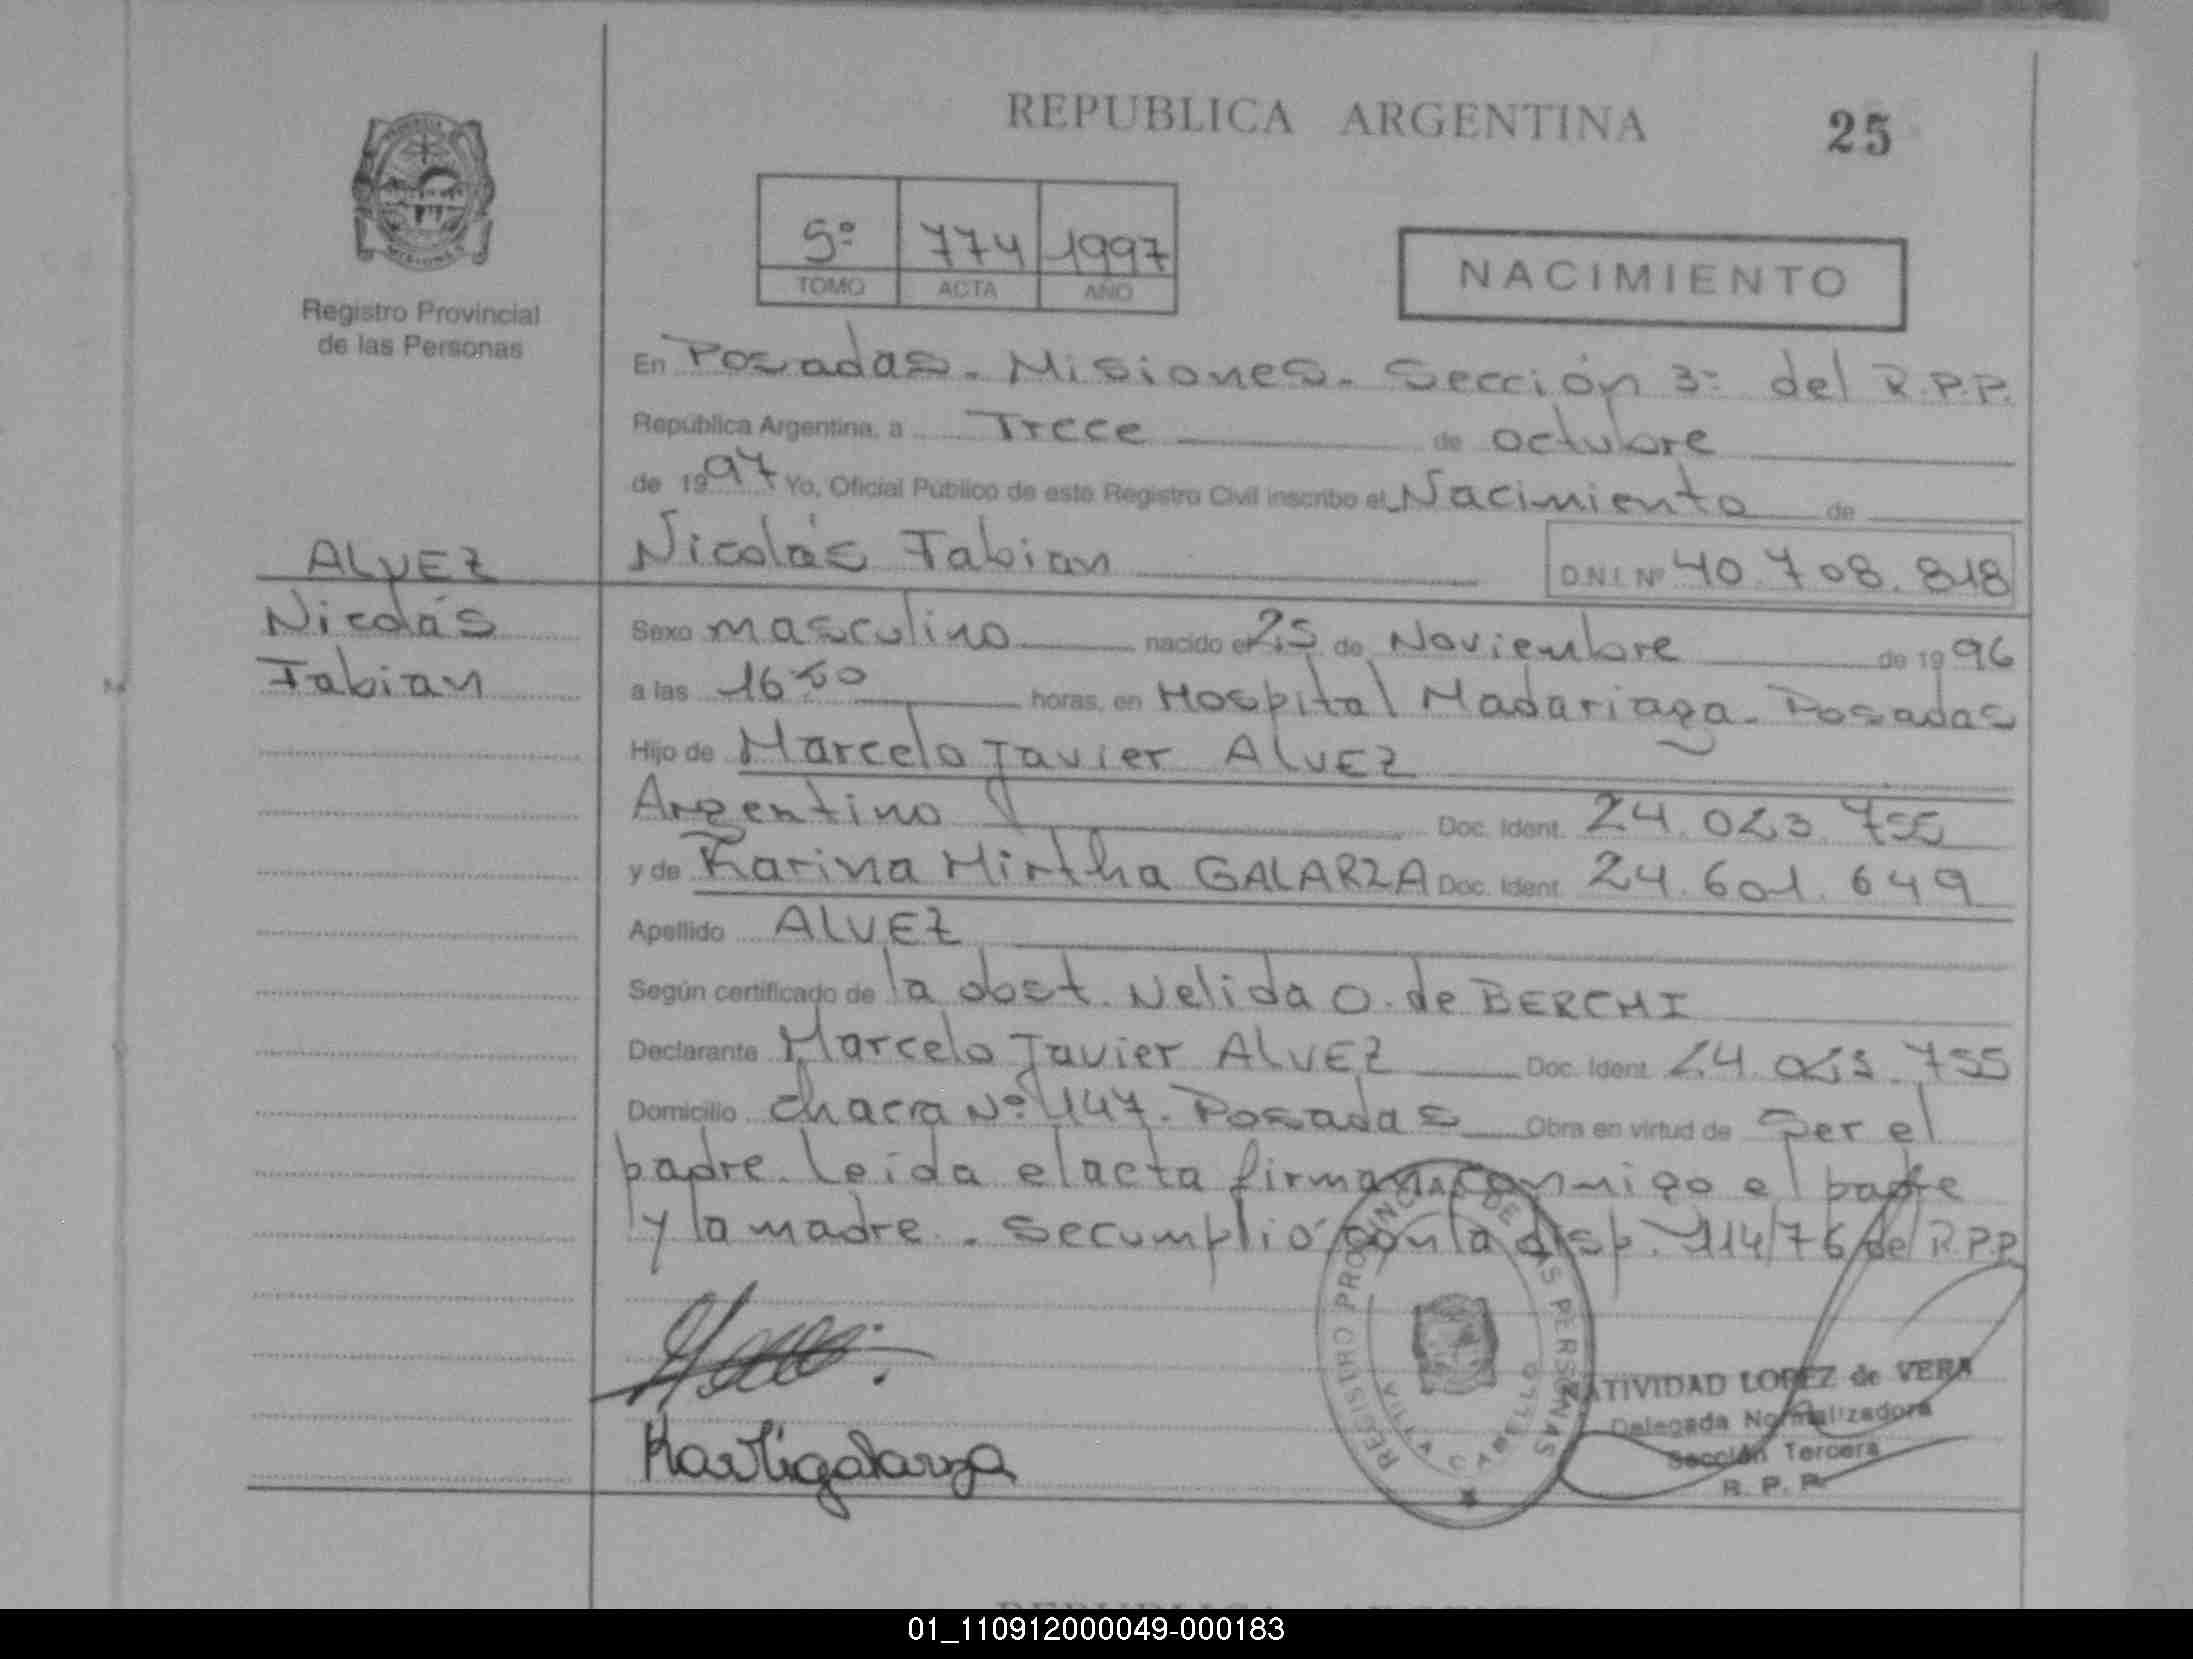 REPUBLICA ARGENTINA
25
5º 774 1997
TOMO ACTA AÑO
NACIMIENTO
Registro Provincial
de las Personas
En Posadas. Misiones. Sección 3ª del R.P.P.
República Argentina, a Trece de octubre
de 1997 Yo, Oficial Público de este Registro Civil inscribo el Nacimiento de
Nicolás Fabian
D.N.I. Nº 40.708.818
ALVEZ
Nicolás
Fabian
Sexo masculino nacido el 25 de Noviembre de 1996
a las 16 horas, en Hospital Madariaga. Posadas
Hijo de Marcelo Javier ALVEZ
Argentino Doc. Ident. 24.023.755
y de Karina Mirtha GALARZA Doc. Ident. 24.601.649
Apellido ALVEZ
Según certificado de la obst. Nelida O. de BERCHI
Declarante Marcelo Javier ALVEZ Doc. Ident. 24.023.755
Domicilio chacra Nº 147. Posadas Obra en virtud de Ser el
padre. Leída el acta firman conmigo el padre
y la madre. se cumplió con la disp. 114/76 del R.P.P.
REGISTRO PROVINCIAL DE LAS PERSONAS
VILLA CABELLO
NATIVIDAD LOPEZ de VERA
Delegada Normalizadora
Sección Tercera
R. P. P.
01_110912000049-000183